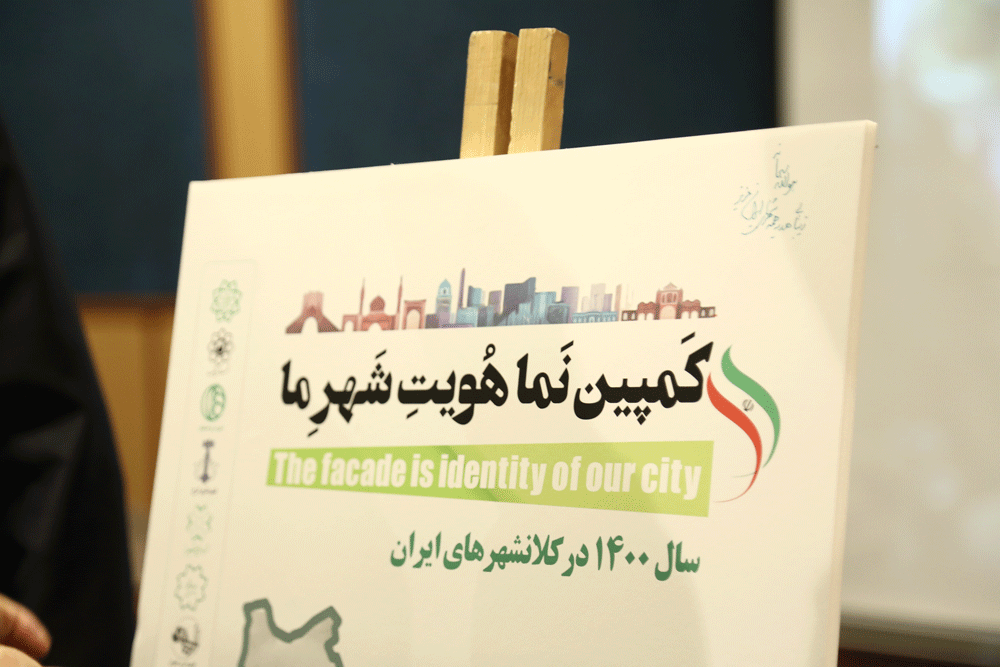 کَمپین نَما هُویتِ شَهرِ ما
The facade is identity of our city
سال ۱۴۰۰ در کلانشهرهای ایران